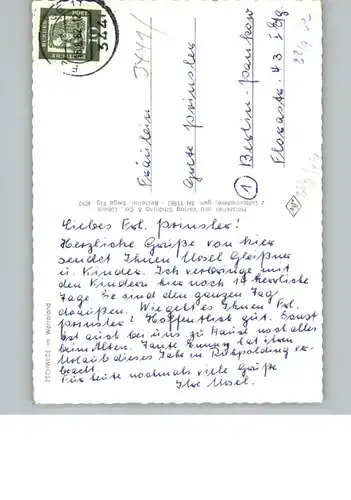 Fräulein
Gute Prinsler
① Berlin-Pankow
Florastr. 43
ESCHWEGE im Werraland
Hersteller und Verlag Schöning & Co., Lübeck
Liebes Frl. Prinsler!
Herzliche Grüße von hier
sendet Ihnen Ursel
u. Kinder. Ich verbringe mit
den Kindern hier noch 12 herrliche
Tage. Sie sind den ganzen Tag
draußen. Wie geht es Ihnen Frl.
Prinsler? Hoffentlich gut. Sonst
ist auch bei uns zu Hause noch alles
beim Alten. Tante hat ihren
Urlaub dieses Jahr in Ruhpolding ver-
bracht.
Für heute nochmals viele Grüße
Ihre Ursel.